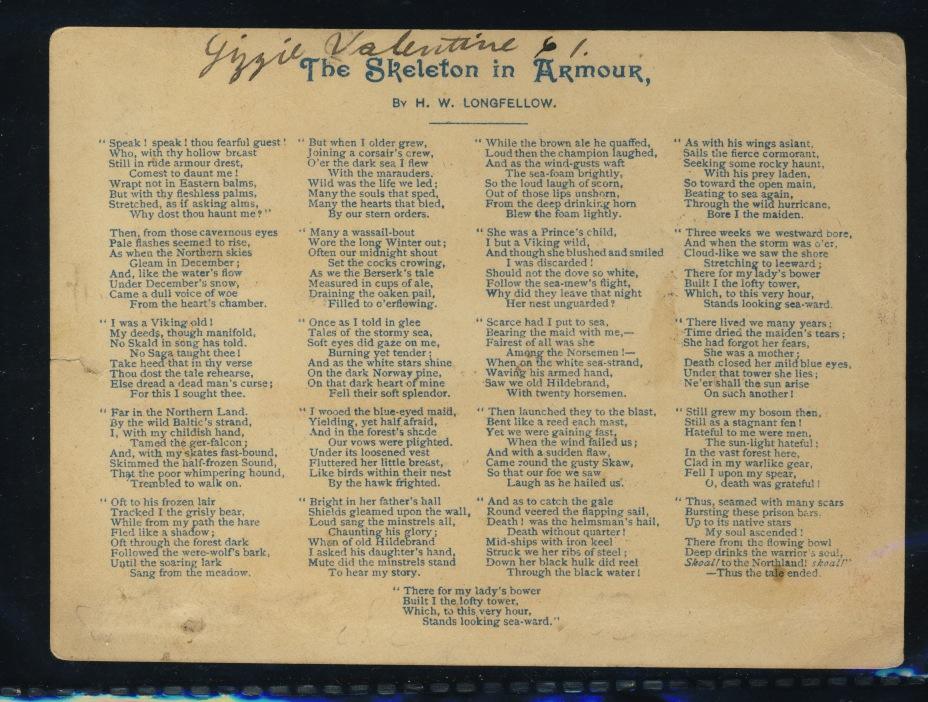 Lizzie Valentine 61.
The Skeleton in Armour,
By H. W. LONGFELLOW.
" Speak! speak! thou fearful guest!
Who, with thy hollow breast
Still in rude armour drest,
Comest to daunt me!
Wrapt not in Eastern balms,
But with thy fleshless palms,
Stretched, as if asking alms,
Why dost thou haunt me?"
Then, from those cavernous eyes
Pale flashes seemed to rise,
As when the Northern skies
Gleam in December;
And, like the water's flow
Under December's snow,
Came a dull voice of woe
From the heart's chamber.
" I was a Viking old!
My deeds, though manifold,
No Skald in song has told.
No Saga taught thee!
Take heed that in thy verse
Thou dost the tale rehearse,
Else dread a dead man's curse;
For this I sought thee.
" Far in the Northern Land.
By the wild Baltic's strand,
I, with my childish hand,
Tamed the ger-falcon;
And, with my skates fast-bound,
Skimmed the half-frozen Sound,
That the poor whimpering hound,
Trembled to walk on.
" Oft to his frozen lair
Tracked I the grisly bear,
While from my path the hare
Fled like a shadow;
Oft through the forest dark
Followed the were-wolf's bark,
Until the soaring lark
Sang from the meadow.
" But when I older grew,
Joining a corsair's crew,
O'er the dark sea I flew
With the marauders.
Wild was the life we led;
Many the souls that sped,
Many the hearts that bled,
By our stern orders.
" Many a wassail-bout
Wore the long Winter out;
Often our midnight shout
Set the cocks crowing,
As we the Berserk's tale
Measured in cups of ale,
Draining the oaken pail,
Filled to o'erflowing.
" Once as I told in glee
Tales of the stormy sea,
Soft eyes did gaze on me,
Burning yet tender;
And as the white stars shine
On the dark Norway pine,
On that dark heart of mine
Fell their soft splendor.
" I wooed the blue-eyed maid,
Yielding, yet half afraid,
And in the forest's shade
Our vows were plighted.
Under its loosened vest
Fluttered her little breast,
Like birds within their nest
By the hawk frighted.
" Bright in her father's hall
Shields gleamed upon the wall,
Loud sang the minstrels all,
Chaunting his glory;
When of old Hildebrand
I asked his daughter's hand,
Mute did the minstrels stand
To hear my story.
" While the brown ale he quaffed,
Loud then the champion laughed,
And as the wind-gusts waft
The sea-foam brightly,
So the loud laugh of scorn,
Out of those lips unshorn,
From the deep drinking horn
Blew the foam lightly.
" She was a Prince's child,
I but a Viking wild,
And though she blushed and smiled
I was discarded!
Should not the dove so white,
Follow the sea-mew's flight,
Why did they leave that night
Her nest unguarded?
" Scarce had I put to sea,
Bearing the maid with me,—
Fairest of all was she
Among the Norsemen!—
When on the white sea-strand,
Waving his armed hand,
Saw we old Hildebrand,
With twenty horsemen.
" Then launched they to the blast,
Bent like a reed each mast,
Yet we were gaining fast,
When the wind failed us;
And with a sudden flaw,
Came round the gusty Skaw,
So that our foe we saw
Laugh as he hailed us.
" And as to catch the gale
Round veered the flapping sail,
Death! was the helmsman's hail,
Death without quarter!
Mid-ships with iron keel
Struck we her ribs of steel;
Down her black hulk did reel
Through the black water!
" As with his wings aslant,
Sails the fierce cormorant,
Seeking some rocky haunt,
With his prey laden,
So toward the open main,
Beating to sea again,
Through the wild hurricane,
Bore I the maiden.
" Three weeks we westward bore,
And when the storm was o'er,
Cloud-like we saw the shore
Stretching to leeward;
There for my lady's bower
Built I the lofty tower,
Which, to this very hour,
Stands looking sea-ward.
" There lived we many years;
Time dried the maiden's tears;
She had forgot her fears,
She was a mother;
Death closed her mild blue eyes,
Under that tower she lies;
Ne'er shall the sun arise
On such another!
" Still grew my bosom then,
Still as a stagnant fen!
Hateful to me were men,
The sun-light hateful;
In the vast forest here,
Clad in my warlike gear,
Fell I upon my spear,
O, death was grateful!
" Thus, seamed with many scars
Bursting these prison bars.
Up to its native stars
My soul ascended!
There from the flowing bowl
Deep drinks the warrior's soul,
Skoal! to the Northland! skoal!"
—Thus the tale ended.
" There for my lady's bower
Built I the lofty tower,
Which, to this very hour,
Stands looking sea-ward."